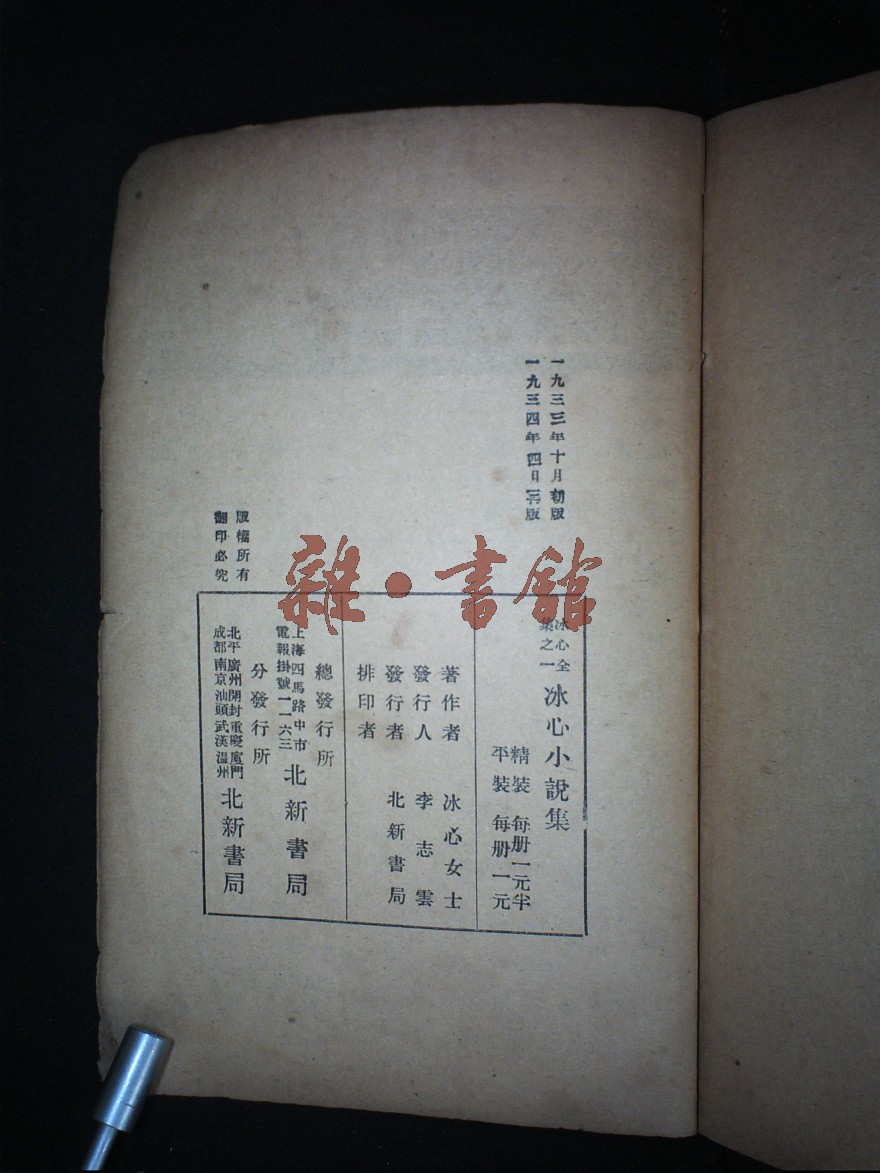 一九三三年十月初版
一九三四年四月三版
版權所有
翻印必究
雜·書館
冰心全
集之一
冰心小說集
精裝 每册一元半
平裝 每册一元
著作者 冰心女士
發行人 李志雲
發行者 北新書局
排印者
總發行所
上海四馬路中市
電報掛號一一六三
北新書局
分發行所
北平廣州開封重慶廈門
成都南京汕頭武漢溫州
北新書局